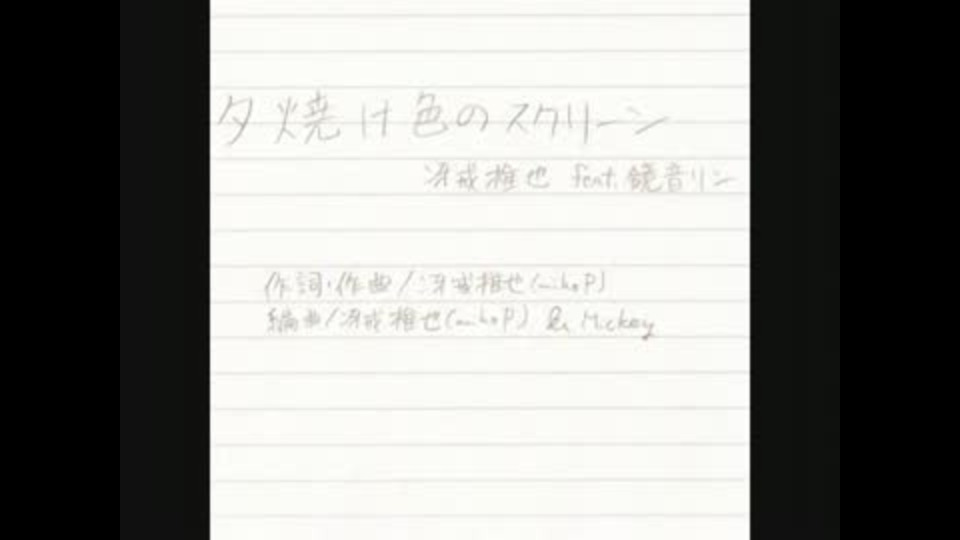 夕焼け色のスクリーン
冴戒椎也 feat. 鏡音リン
作詞・作曲/冴戒椎也(mikoP)
編曲/冴戒椎也(mikoP) & Mickey